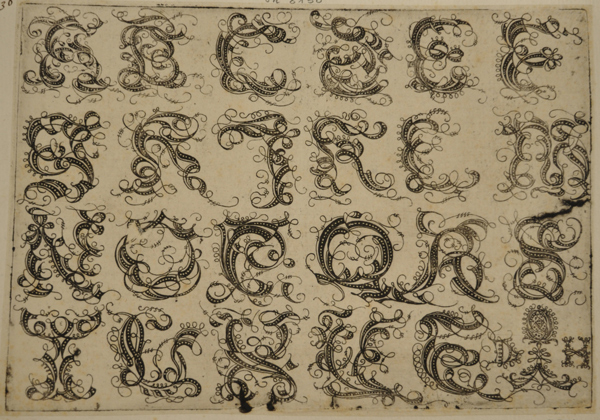 A B C D E F
G H I K L M
N O P Q R S
T V X Y Z H